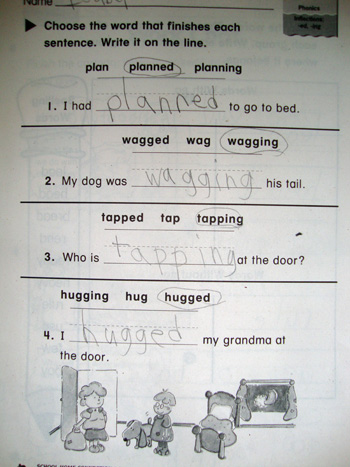 Name
Phonics
Inflections
-ed, -ing
Choose the word that finishes each
sentence. Write it on the line.
plan planned planning
1. I had planned to go to bed.
wagged wag wagging
2. My dog was wagging his tail.
tapped tap tapping
3. Who is tapping at the door?
hugging hug hugged
4. I hugged my grandma at
the door.
SCHOOL HOME